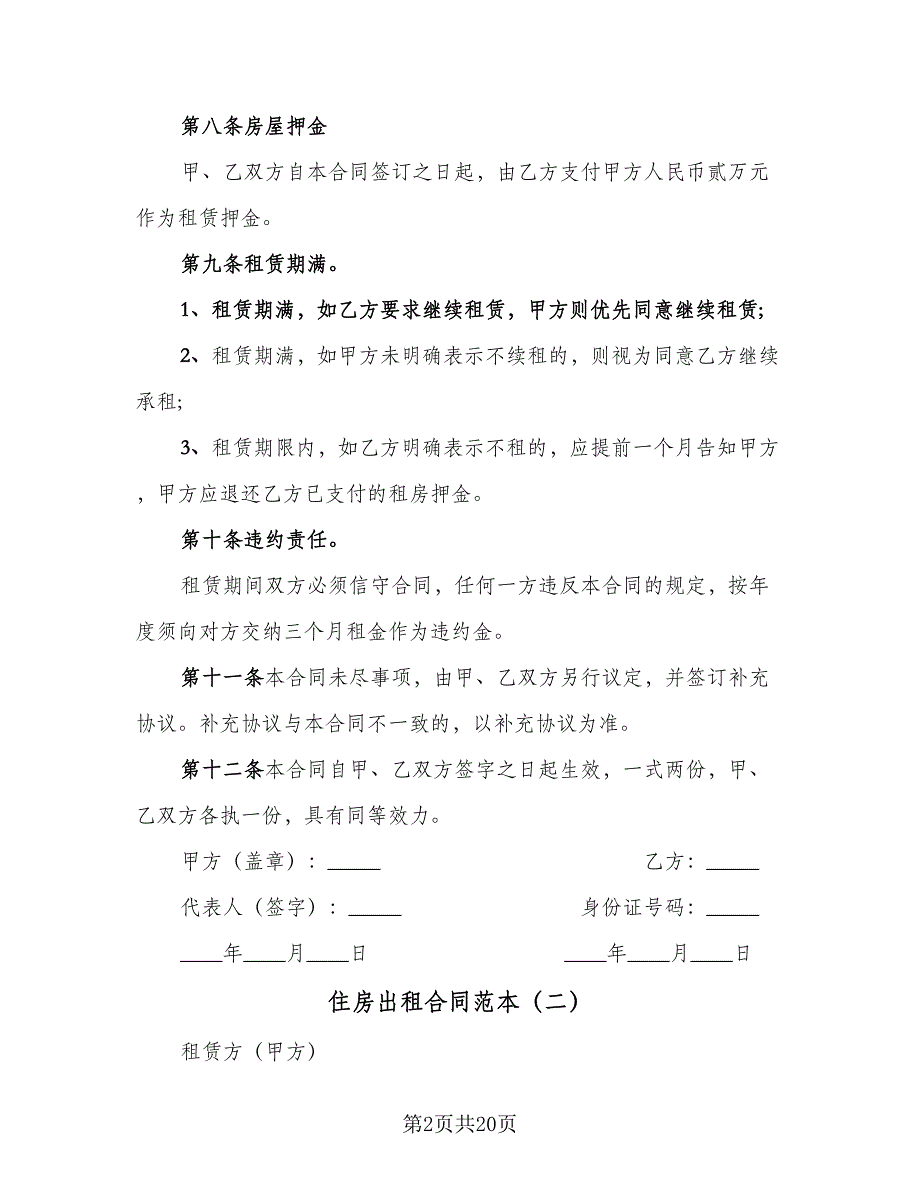 第八条房屋押金
甲、乙双方自本合同签订之日起，由乙方支付甲方人民币贰万元
作为租赁押金。
第九条租赁期满。
1、租赁期满，如乙方要求继续租赁，甲方则优先同意继续租赁;
2、租赁期满，如甲方未明确表示不续租的，则视为同意乙方继续
承租;
3、租赁期限内，如乙方明确表示不租的，应提前一个月告知甲方
，甲方应退还乙方已支付的租房押金。
第十条违约责任。
租赁期间双方必须信守合同，任何一方违反本合同的规定，按年
度须向对方交纳三个月租金作为违约金。
第十一条本合同未尽事项，由甲、乙双方另行议定，并签订补充
协议。补充协议与本合同不一致的，以补充协议为准。
第十二条本合同自甲、乙双方签字之日起生效，一式两份，甲、
乙双方各执一份，具有同等效力。
甲方（盖章）：_____ 乙方：_____
代表人（签字）：_____ 身份证号码：_____
____年____月____日 ____年____月____日
住房出租合同范本（二）
租赁方（甲方）
第2页共20页